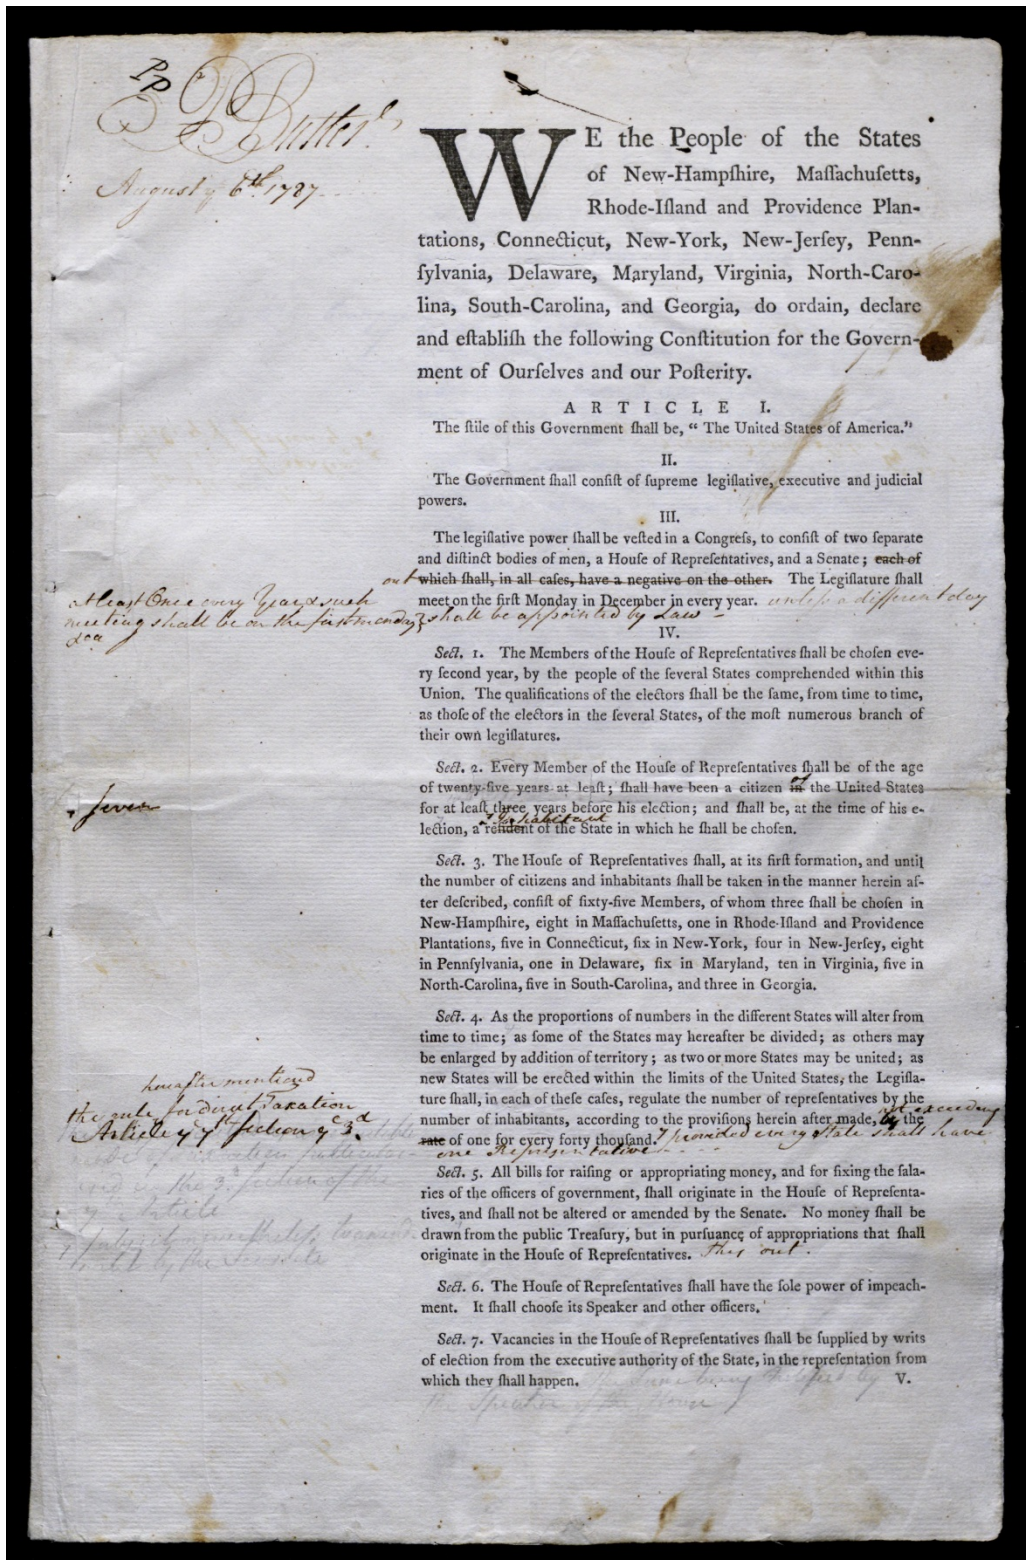 PP
P Butler
August yͤ 6th. 1787
WE the People of the States
of New-Hampſhire, Maſſachuſetts,
Rhode-Iſland and Providence Plan-
tations, Connecticut, New-York, New-Jerſey, Penn-
ſylvania, Delaware, Maryland, Virginia, North-Caro-
lina, South-Carolina, and Georgia, do ordain, declare
and eſtabliſh the following Conſtitution for the Govern-
ment of Ourſelves and our Poſterity.
ARTICLE I.
The ſtile of this Government ſhall be, “ The United States of America.”
II.
The Government ſhall conſiſt of ſupreme legiſlative, executive and judicial
powers.
III.
The legiſlative power ſhall be veſted in a Congreſs, to conſiſt of two ſeparate
and diſtinct bodies of men, a Houſe of Repreſentatives, and a Senate; each of
out which ſhall, in all caſes, have a negative on the other. The Legiſlature ſhall
meet on the firſt Monday in December in every year. unleſs a different day
ſhall be appointed by Law
at least Once every Year & such
meeting shall be on the first monday
IV.
Sect. 1. The Members of the Houſe of Repreſentatives ſhall be choſen eve-
ry ſecond year, by the people of the ſeveral States comprehended within this
Union. The qualifications of the electors ſhall be the ſame, from time to time,
as thoſe of the electors in the ſeveral States, of the moſt numerous branch of
their own legiſlatures.
Sect. 2. Every Member of the Houſe of Repreſentatives ſhall be of the age
of
of twenty-five years at leaſt; ſhall have been a citizen in the United States
seven
for at leaſt three years before his election; and ſhall be, at the time of his e-
Inhabitant
lection, a reſident of the State in which he ſhall be choſen.
Sect. 3. The Houſe of Repreſentatives ſhall, at its firſt formation, and until
the number of citizens and inhabitants ſhall be taken in the manner herein af-
ter deſcribed, conſiſt of ſixty-five Members, of whom three ſhall be choſen in
New-Hampſhire, eight in Maſſachuſetts, one in Rhode-Iſland and Providence
Plantations, five in Connecticut, ſix in New-York, four in New-Jerſey, eight
in Pennſylvania, one in Delaware, ſix in Maryland, ten in Virginia, five in
North-Carolina, five in South-Carolina, and three in Georgia.
Sect. 4. As the proportions of numbers in the different States will alter from
time to time; as ſome of the States may hereafter be divided; as others may
be enlarged by addition of territory; as two or more States may be united; as
new States will be erected within the limits of the United States, the Legiſla-
ture ſhall, in each of theſe caſes, regulate the number of repreſentatives by the
not exceeding
number of inhabitants, according to the proviſions herein after made, by the
rate of one for every forty thouſand. provided every State shall have
one Representative
hereafter mentioned
the rule for direct Taxation
Article yͤ 7th section yͤ 3d
Sect. 5. All bills for raiſing or appropriating money, and for fixing the ſala-
ries of the officers of government, ſhall originate in the Houſe of Repreſenta-
tives, and ſhall not be altered or amended by the Senate. No money ſhall be
drawn from the public Treaſury, but in purſuance of appropriations that ſhall
originate in the Houſe of Repreſentatives. this out.
Sect. 6. The Houſe of Repreſentatives ſhall have the ſole power of impeach-
ment. It ſhall chooſe its Speaker and other officers.
Sect. 7. Vacancies in the Houſe of Repreſentatives ſhall be ſupplied by writs
of election from the executive authority of the State, in the repreſentation from
which they ſhall happen.
V.
the Speaker of the House